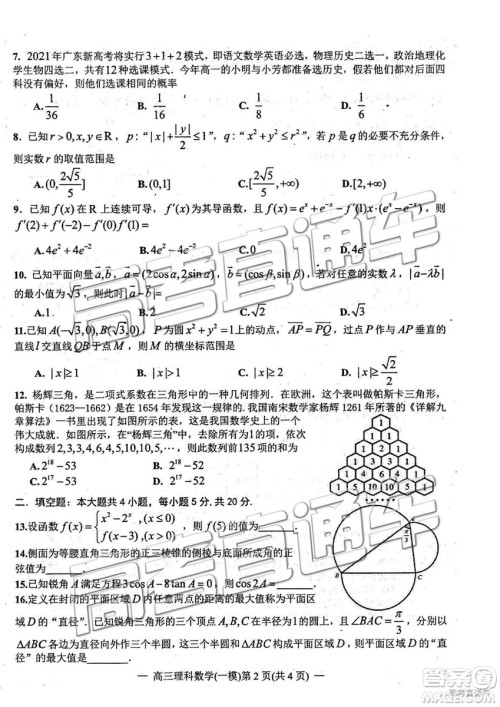 7. 2021年广东新高考将实行3+1+2模式，即语文数学英语必选，物理历史二选一，政治地理化
学生物四选二，共有12种选课模式．今年高一的小明与小芳都准备选历史，假若他们都对后面四
科没有偏好，则他们选课相同的概率
A. 1/36 B. 1/16 C. 1/8 D. 1/6
8. 已知 r>0, x,y∈R，p:"|x|+|y|/2≤1"，q:"x²+y²≤r²"，若p是q的必要不充分条件，
则实数r的取值范围是
A.(0, 2√5/5] B.(0,1] C.[2√5/5,+∞) D.[2,+∞)
9. 已知 f(x) 在 R 上连续可导，f′(x) 为其导函数，且 f(x)=eˣ+e⁻ˣ−f′(1)x·(eˣ−e⁻ˣ)，则
f′(2)+f′(−2)−f′(0)f′(1)=
A. 4e²+4e⁻² B. 4e²−4e⁻² C. 0 D. 4e²
10. 已知平面向量 a,b，a=(2cosα,2sinα)，b=(cosβ,sinβ)，若对任意的实数λ，|a−λb|
的最小值为√3，则此时|a−b|=
11.已知A(−√3,0),B(√3,0)，P为圆x²+y²=1上的动点，AP=PQ，过点P与AP垂直的
直线l交直线QB于点M，则M的横坐标范围是
A.|x|≥1 B.|x|>1 C.|x|≥2 D.|x|≥√2/2
12. 杨辉三角，是二项式系数在三角形中的一种几何排列．在欧洲，这个表叫做帕斯卡三角形，
帕斯卡（1623—1662）是在1654年发现这一规律的．我国南宋数学家杨辉1261年所著的《详解九
章算法》一书里出现了如图所示的表，这是我国数学史上的一个
伟大成就．如图所示，在"杨辉三角"中，
去除所有为1的项，依次构成数列，则此数列前135项的和为
A. 2¹⁸−53 B. 2¹⁸−52 C. 2¹⁷−53 D. 2¹⁷−52
二．填空题：本大题共4小题，每小题5分，共20分．
13.设函数 f(x)={x²−2⁻ˣ,(x≤0) f(x−3),(x>0)，则f(5)的值为
14.侧面为等腰直角三角形的正三棱锥的侧棱与底面所成角的正
弦值为
15.已知锐角A满足方程3cosA−8tanA=0，则cos2A=
16.定义在封闭的平面区域D内任意两点的距离的最大值称为平面
区域D的"直径"．已知锐角三角形的三个顶点在半径为1的圆上，且∠BAC=π/3，
分别以△ABC各边为直径向外作三个半圆，这三个半圆和△ABC构成平面区域D，则平面区域D的"直
径"的最大值是
高三理科数学(一模)第2页(共4页)
高考直通车